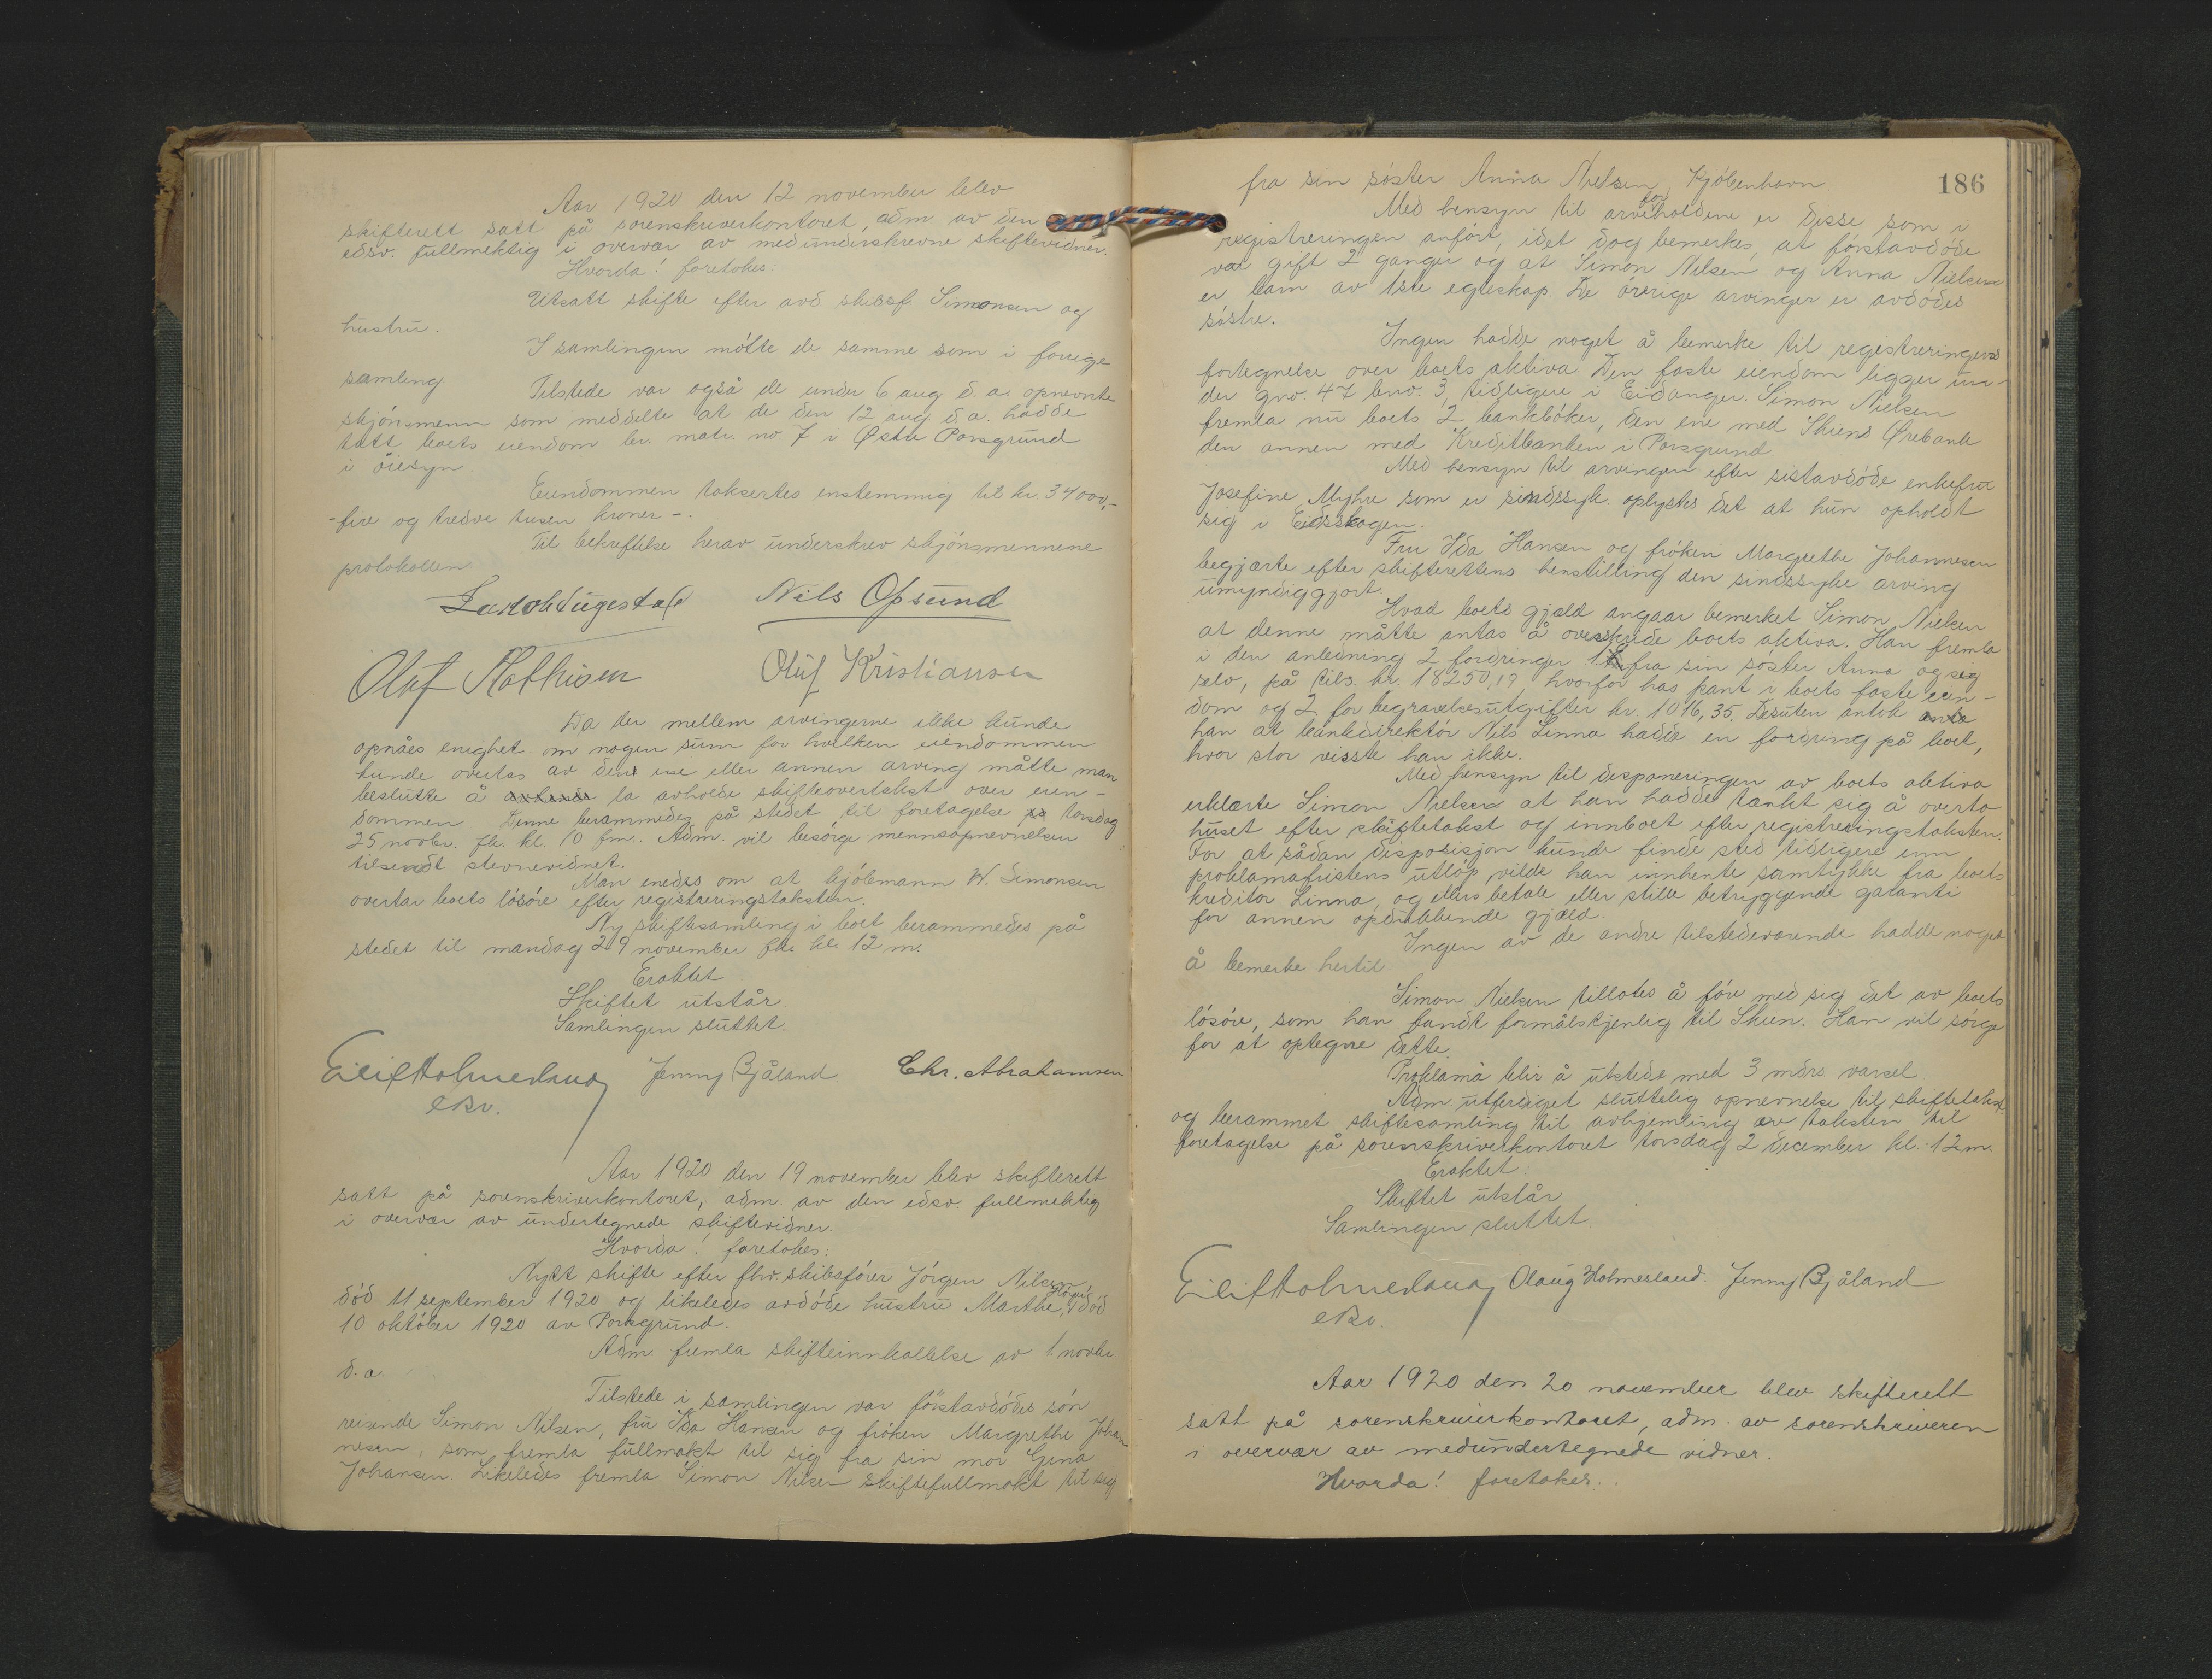 Aar 1920 den 12 november blev
skifterett satt på sorenskriverkontoret, adm. av den
edsv. fullmektig i overvær av medunderskrevne skiftevidner.
Hvorda! foretokes:
Utsatt skifte efter avd skibsf. Simonsen og
hustru.
I samlingen møtte de samme som i forrige
samling
Tilstede var også de under 6 aug d. a. opnevnte
skjønsmenn som meddelte at de den 12 aug. d. a. hadde
tatt boets eiendom br. matr. no 7 i Østre Porsgrund
i øiesyn.
Eiendommen taksertes enstemmig til kr. 34000,-
-fire og tredve tusen kroner-.
Til bekreftelse herav underskrev skjønsmennene
protokollen.
Nils Opsund
Olaf Mathisen Oluf Kristiansen
Da der mellem arvingerne ikke kunde
opnåes enighet om nogen sum for hvilken eiendommen
kunde overtas av den ene eller annen arving måtte man
beslutte å la avholde skifteovertakst over eien-
dommen Denne berammedes på stedet til foretagelse torsdag
25 novbr. fk. kl. 10 fm.. Adm. vil besørge mennsopnevnelsen
tilsendt stevnevidnet.
Man enedes om at kjøbmann W. Simonsen
overtar boets løsøre efter registreringstaksten.
Ny skiftesamling i boet berammedes på
stedet til mandag 29 november fk. kl. 12 m.
Eraktet
Skiftet utstår.
Samlingen sluttet.
Eilif Holmesland Jenny Bjåland Chr. Abrahamsen
eksv.
Aar 1920 den 19 november blev skifterett
satt på sorenskriverkontoret, adm. av den edsv. fullmektig
i overvær av undertegnede skiftevidner.
Hvorda! foretokes:
Nytt skifte efter fhv. skibsfører Jørgen Nilsen
død 11 september 1920 og likeledes avdøde hustru Marthe, død
10 oktober 1920 av Porsgrund.
Adm. fremla skifteinnkallelse av 1. novbr.
d. a.
Tilstede i samlingen var førstavdødes søn
reisende Simon Nilsen, fru Ida Hansen og frøken Margrethe Johan
nesen, som fremla fullmakt til sig fra sin mor Gina
Johansen. Likeledes fremla Simon Nilsen skiftefullmakt til sig
186
fra sin søster Anna Nielsen, Kjøbenhavn.
Med hensyn til arveforholdene er disse som i
registreringen anført, idet dog bemerkes, at førstavdøde
var gift 2 ganger og at Simon Nilsen og Anna Nielsen
er barn av 1ste egteskap. De øvrige arvinger er avdødes
søstre.
Ingen hadde noget å bemerke til registreringens
fortegnelse over boets aktiva. Den faste eiendom ligger un-
der gno. 47 bno. 3, tidligere i Eidanger. Simon Nielsen
fremla nu boets 2 bankbøker, den ene med Skiens Ørebank
den annen med Kreditbanken i Porsgrund
Med hensyn til arvingen efter sistavdøde enkefru
Josefine Myhre som er sindssyk. oplystes det at hun opholdt
sig i Eidsskogen.
Fru Ida Hansen og frøken Margrethe Johannesen
begjærte efter skifterettens henstilling den sindssyke arving
umyndiggjort.
Hvad boets gjæld angaar bemerket Simon Nielsen
at denne måtte antas å overskride boets aktiva. Han fremla
i den anledning 2 fordringer 1 fra sin søster Anna og sig
selv, på tils. kr. 18250,19 hvorfor has pant i boets faste eien-
dom og 2 for begravelsesutgifter kr. 1016,35. Desuten antok
han at bankdirektør Nils Linna hadde en fordring på boet,
hvor stor visste han ikke.
Med hensyn til disponeringen av boets aktiva
erklærte Simon Nielsen at han hadde tænkt sig å overta
huset efter skiftetakst og innboet efter registreringstaksten.
For at sådan disposisjon kunde finde sted tidligere enn
proklamafristens utløp, vilde han innhente samtykke fra boets
kreditor Linna, og ellers betale eller stille betryggende garanti
for annen opdukkende gjæld.
Ingen av de andre tilstedeværende hadde noget
å bemerke hertil.
Simon Nielsen tillotes å føre med sig det av boets
løsøre, som han fandt formålstjenlig til Skien. Han vil sørge
for at optegne dette.
Proklama blir å utstede med 3 mdrs. varsel
Adm. utferdiget sluttelig opnevnelse til skiftetakst
og berammet skiftesamling til avhjemling av taksten til
foretagelse på sorenskriverkontoret torsdag 2 december kl. 12 m.
Eraktet:
Skiftet utstår
Samlingen sluttet
Eilif Holmesland Olaug Holmesland. Jenny Bjåland
eksv.
Aar 1920 den 20 november blev skifterett
satt på sorenskriverkontoret, adm. av sorenskriveren
i overvær av medundertegnede vidner.
Hvorda! foretokes:.